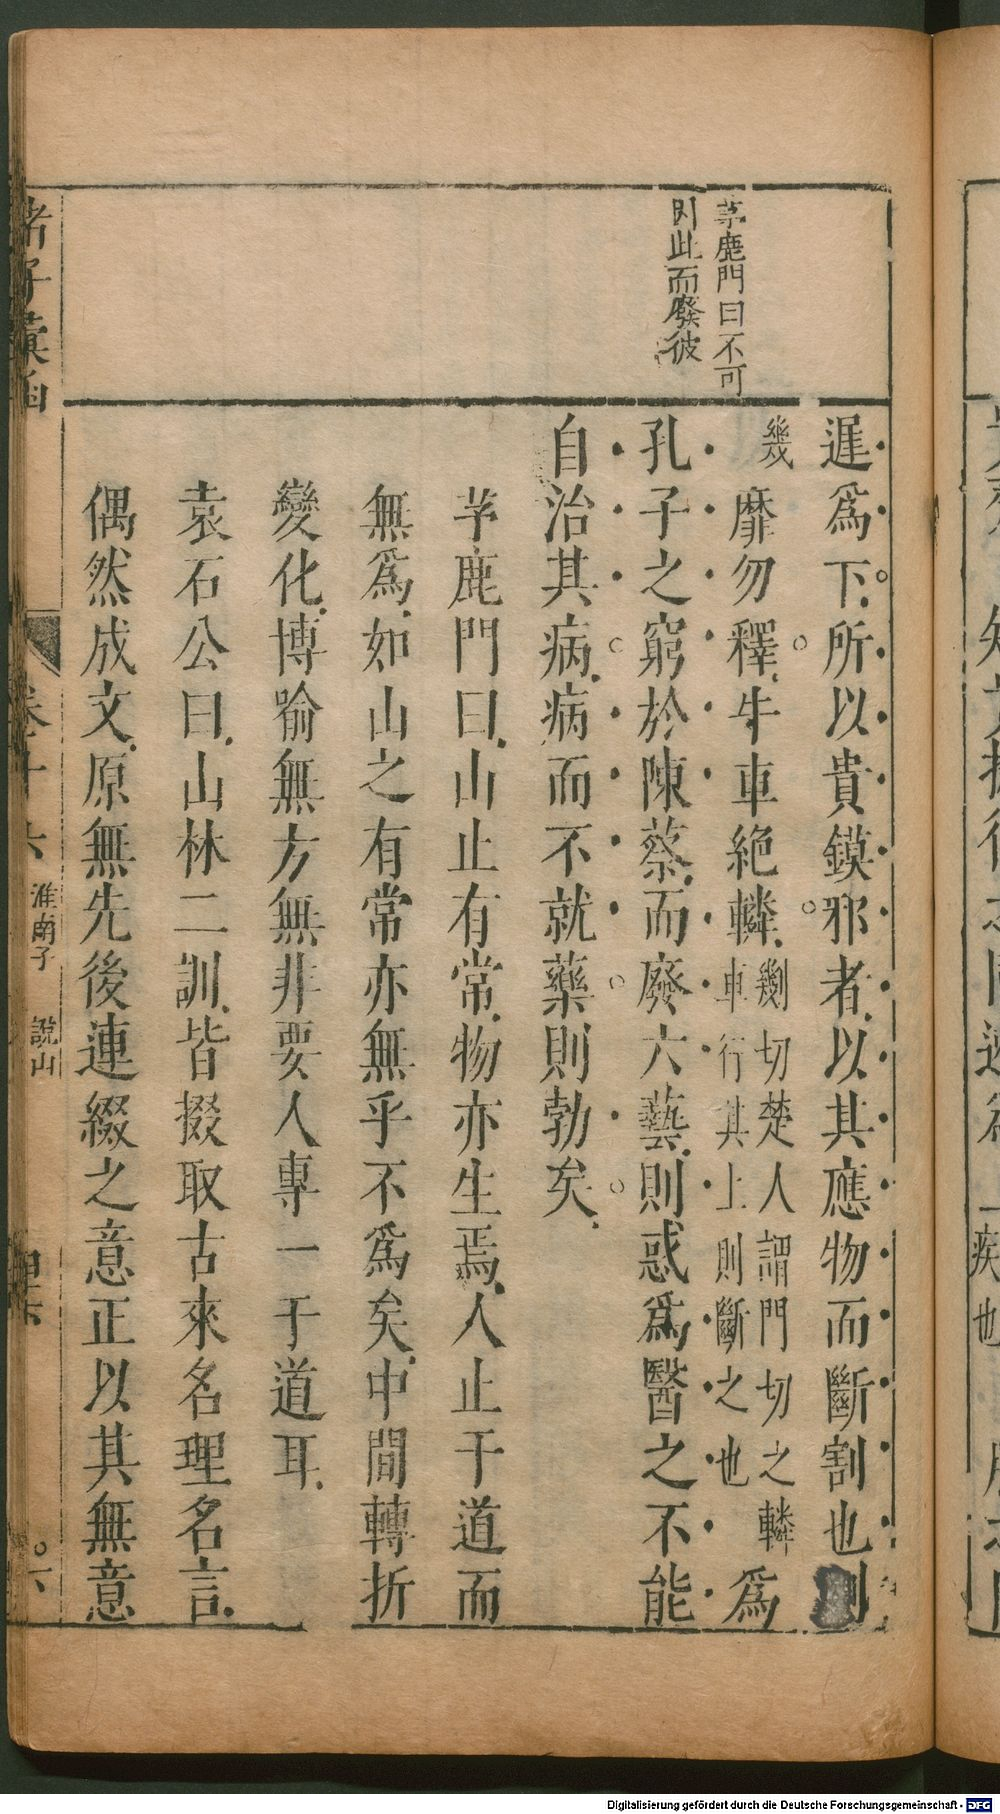 茅鹿門曰不可
則此而廢彼
遲爲下所以貴鏌邪者以其應物而斷割也
幾靡勿釋牛車絕轔
劌切楚人謂門切之轔
車行其上則斷之也
爲
孔子之窮於陳蔡而廢六藝則惑爲醫之不能
自治其病病而不就藥則勃矣
茅鹿門曰山止有常物亦生焉人止于道而
無爲如山之有常亦無乎不爲矣中間轉折
變化博喻無方無非要人專一于道耳
袁石公曰山林二訓皆掇取古來名理名言
偶然成文原無先後連綴之意正以其無意
諸子彙函
卷十六
淮南子
說山
六
Digitalisierung gefördert durch die Deutsche Forschungsgemeinschaft - DFG